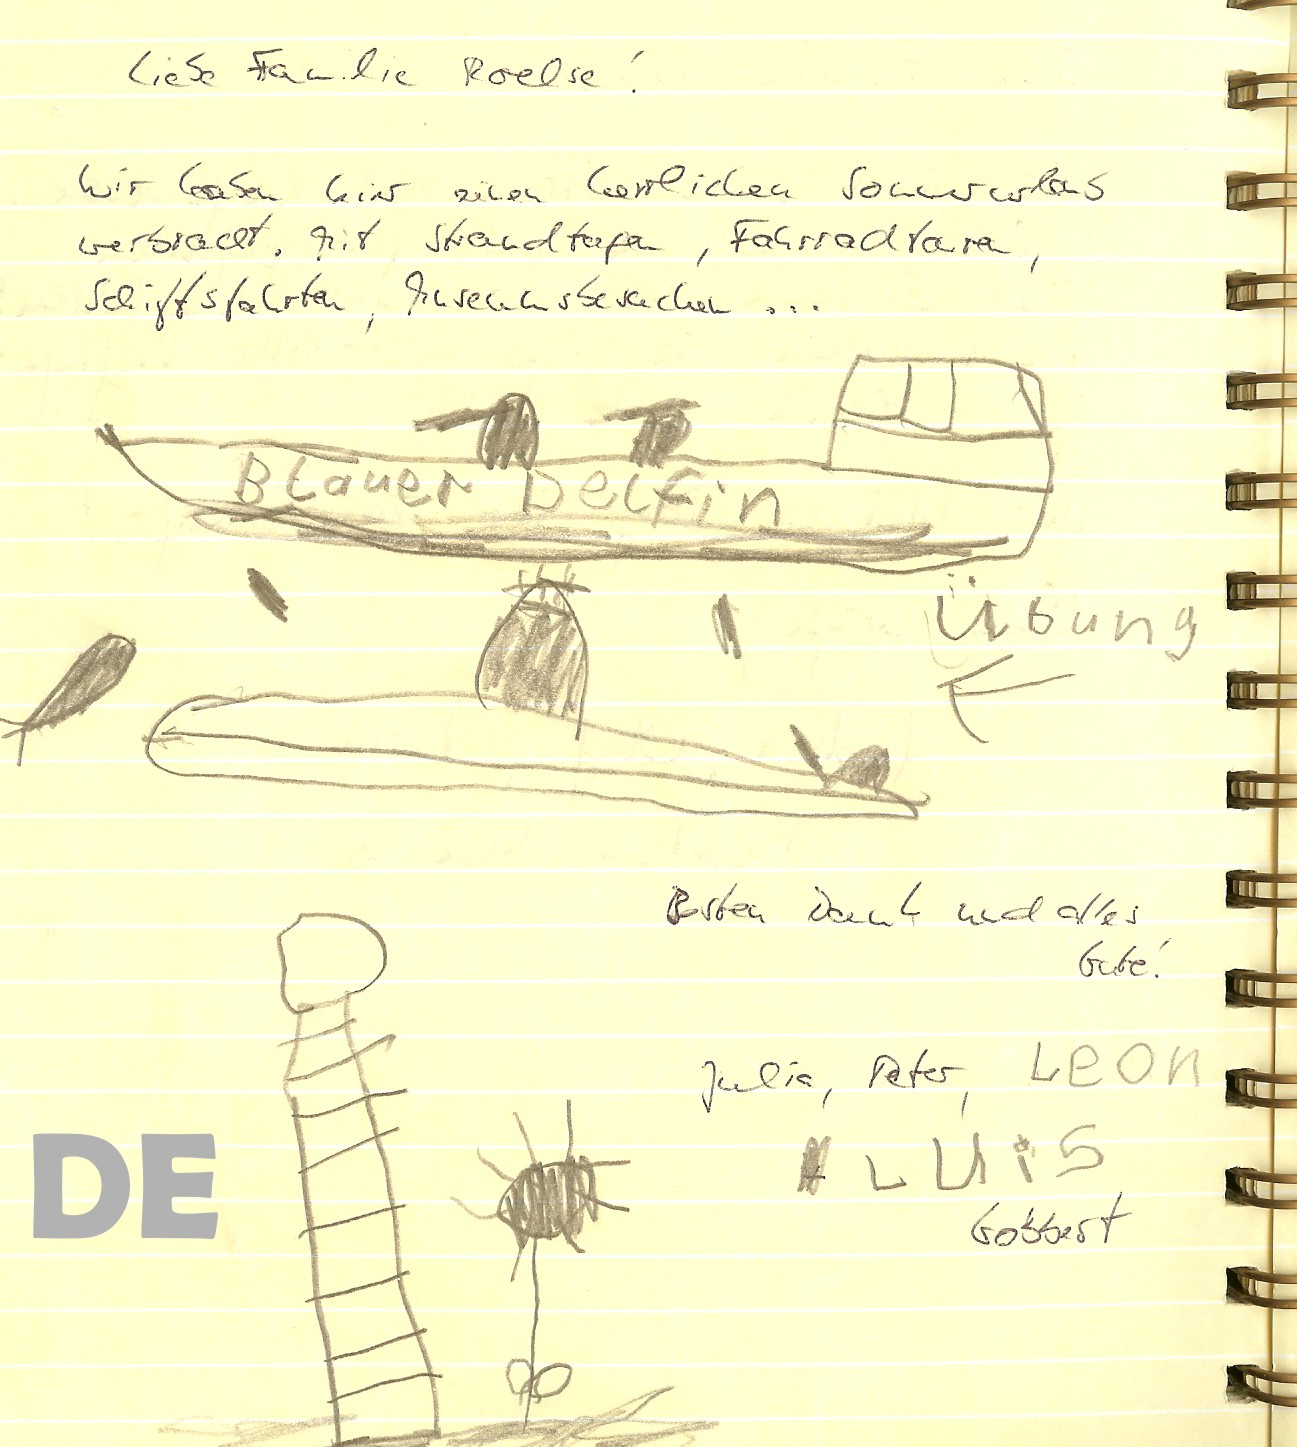 Liebe Familie Roelse!
Wir haben hier einen herrlichen Sommerurlaub
verbracht. Mit Strandtagen, Fahrradtouren,
Schiffsfahrten, Museumsbesuchen ...
Blauer Delfin
Übung
Besten Dank und alles
Gute!
Julia, Peter, Leon
LUiS
Göbbert
DE